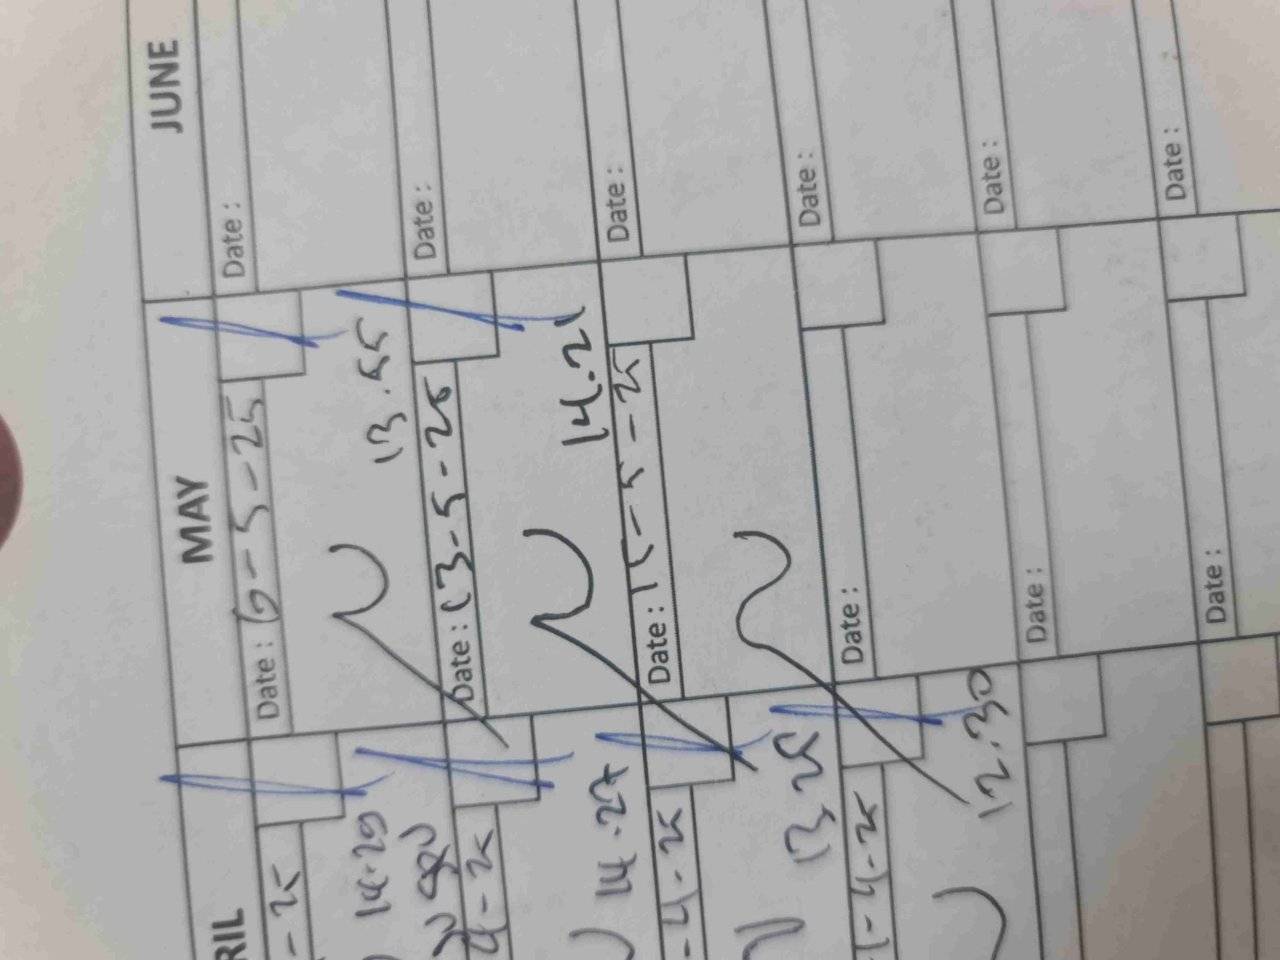 RIL
MAY
JUNE
-25
Date : 6-5-25
Date :
14.29
13.55
4-25
Date : 13-5-25
Date :
14.27
14.21
-4-25
Date : 15-5-25
Date :
13.25
-4-25
Date :
Date :
12.30
Date :
Date :
Date :
Date :